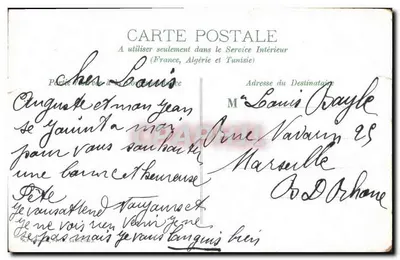 CARTE POSTALE
A utiliser seulement dans le Service Intérieur
(France, Algérie et Tunisie)
Adresse du Destinataire
Cher Louis
Auguste et mon Jean
se joint a moi
pour vous souhaiter
une bonne et heureuse
Fête
Je vous attend toujours et
je ne vois rien venir je ne
mais je vous languis bien
M Louis Bayle
Rue Navarin 25
Marseille
B D Rhone